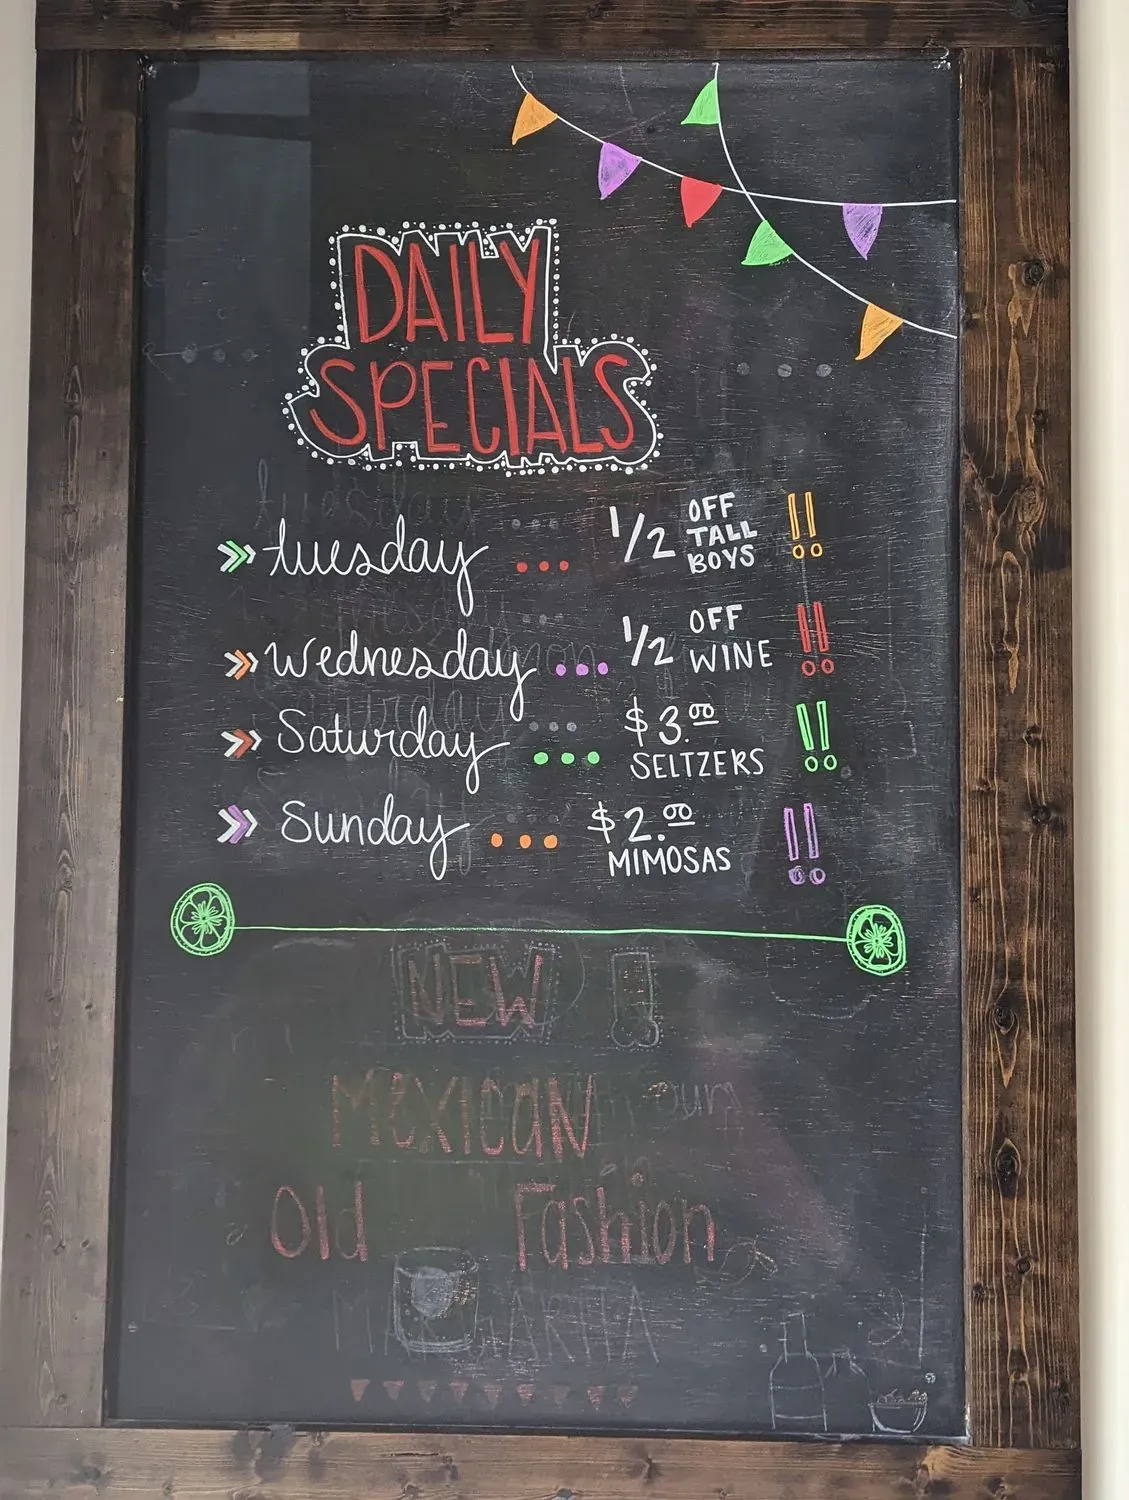 DAILY
SPECIALS
tuesday
tuesday ... 1/2 OFF TALL BOYS !!
Wednesday ... 1/2 OFF WINE !!
Saturday
Saturday ... $3.00 SELTZERS !!
Sunday ... $2.00 MIMOSAS !!
NEW !
MEXICAN
Old Fashion
MARGARITA